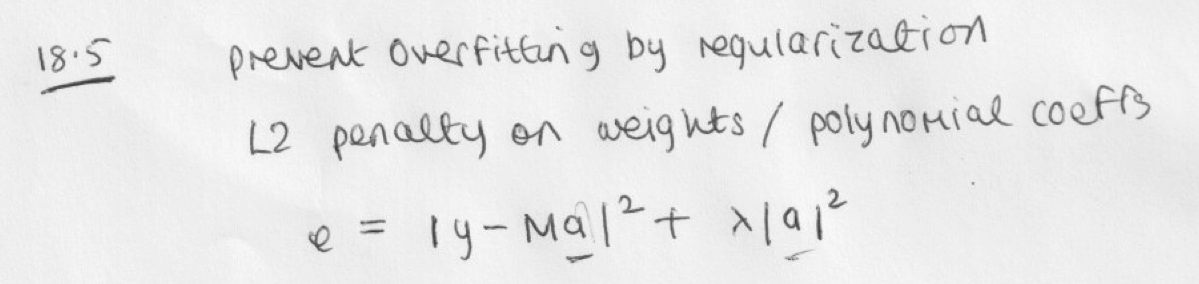 18.5 prevent overfitting by regularization
L2 penalty on weights / polynomial coeffs
e = |y - Ma|² + λ|a|²